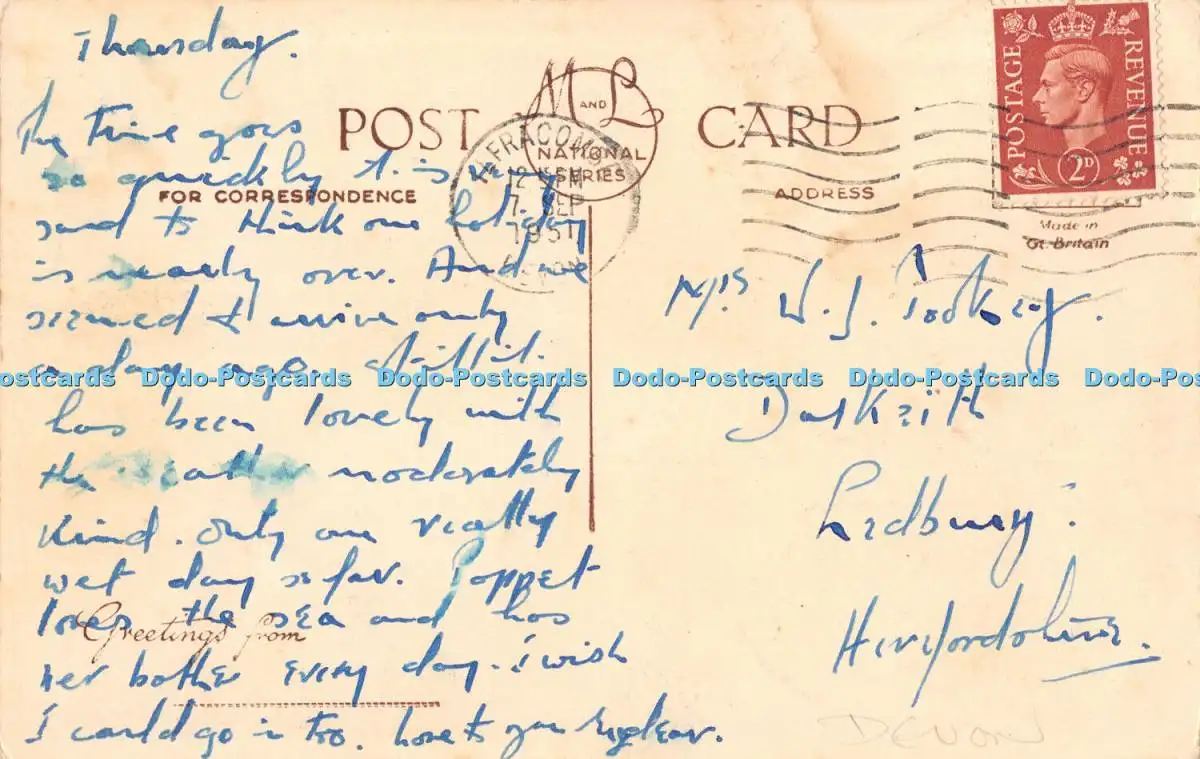 Thursday.
The time goes
so quickly it is very
sad to think our holiday
is nearly over. And we
seemed to arrive only
a day ago. Still it
has been lovely with
the weather moderately
kind. only one really
wet day so far. Poppet
loves the sea and has
her bathe every day. I wish
I could go in too. Love to you
POST CARD
M AND L
NATIONAL
SERIES
FOR CORRESPONDENCE
ADDRESS
Greetings from
ILFRACOMBE
12 PM
7 SEP
1951
DEVON
POSTAGE
REVENUE
2D
Made in
Gt. Britain
Mrs W. J.
Dalkeith
Ledbury.
Herefordshire.
DEVON
Dodo-Postcards Dodo-Postcards Dodo-Postcards Dodo-Postcards Dodo-Postcards Dodo-Postcards